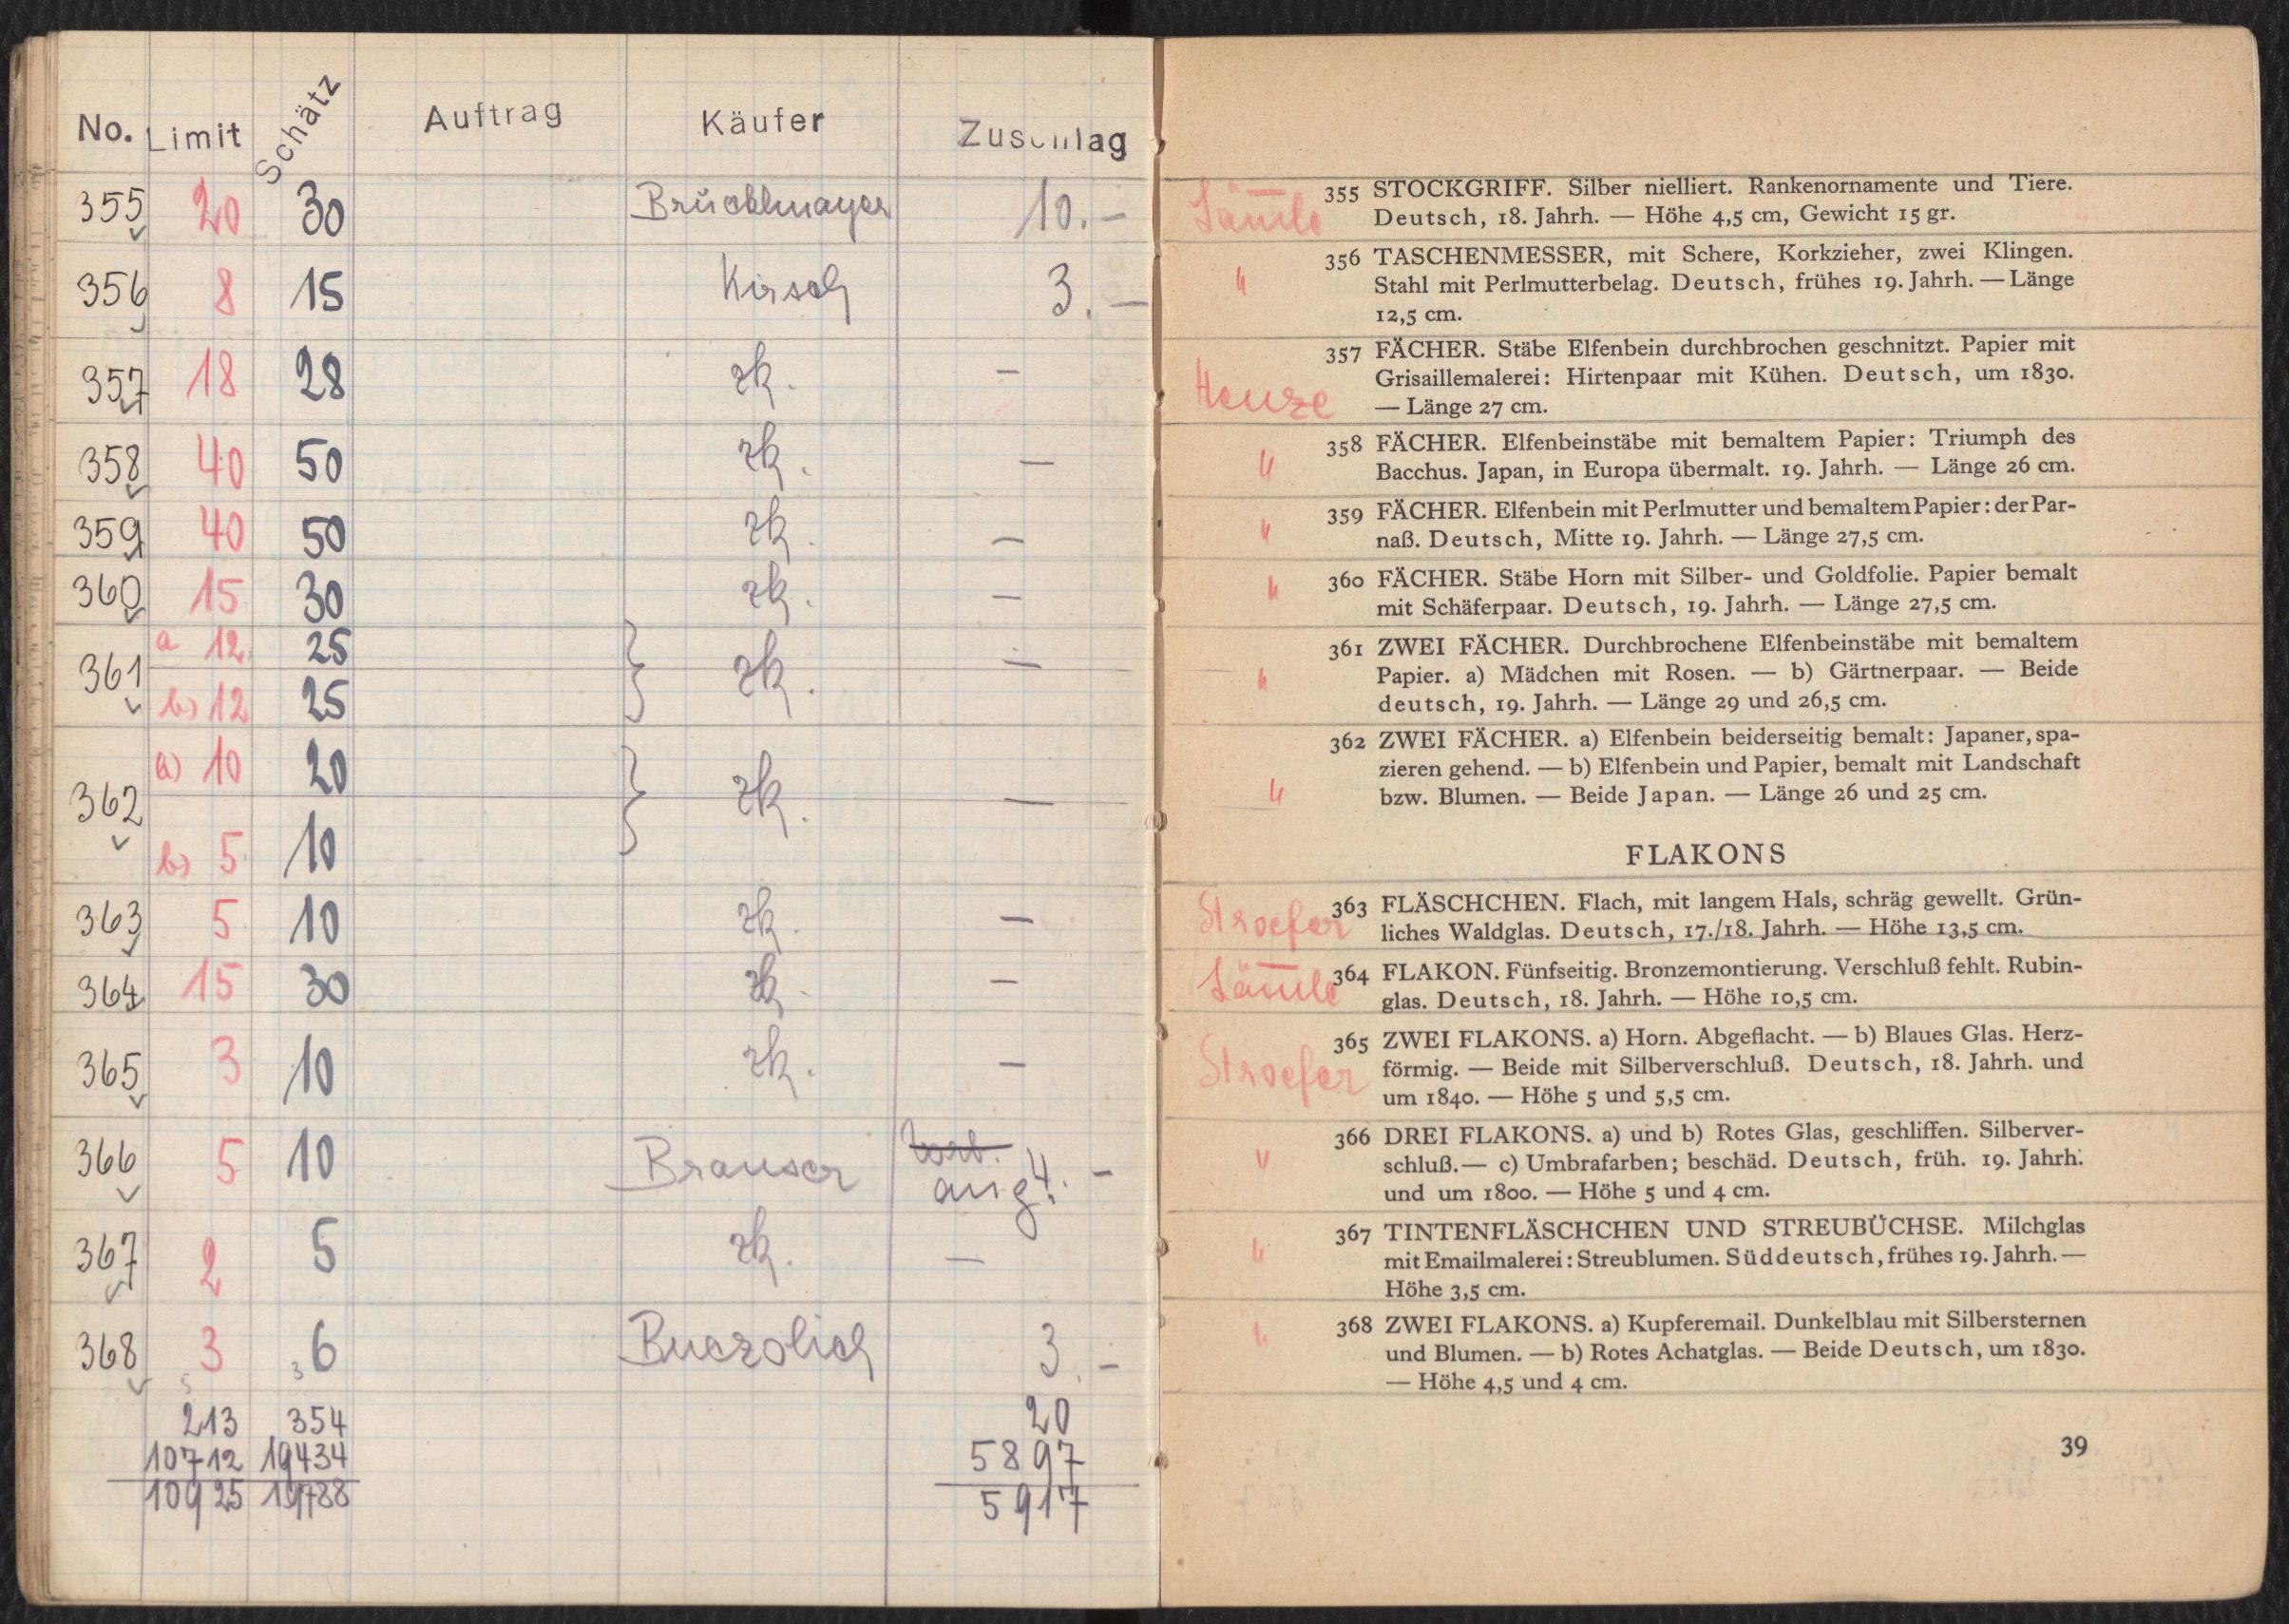 No. Limit Schätz Auftrag Käufer Zuschlag
355 20 30 Brücklmayer 10.-
356 8 15 Kirsch 3.-
357 18 28 zk. -
358 40 50 zk. -
359 40 50 zk. -
360 15 30 zk. -
361 a 12 25 zk. -
b) 12 25
362 a) 10 20 zk. -
b) 5 10
363 5 10 zk. -
364 15 30 zk. -
365 3 10 zk. -
366 5 10 Brauser 4.-
367 2 5 zk. -
368 3 6 Buczolich 3.-
213 354 20
10712 19434 5897
10925 19788 5917
355 STOCKGRIFF. Silber nielliert. Rankenornamente und Tiere.
Sämle Deutsch, 18. Jahrh. — Höhe 4,5 cm, Gewicht 15 gr.
356 TASCHENMESSER, mit Schere, Korkzieher, zwei Klingen.
" Stahl mit Perlmutterbelag. Deutsch, frühes 19. Jahrh. — Länge
12,5 cm.
357 FÄCHER. Stäbe Elfenbein durchbrochen geschnitzt. Papier mit
Grisaillemalerei: Hirtenpaar mit Kühen. Deutsch, um 1830.
Henze — Länge 27 cm.
358 FÄCHER. Elfenbeinstäbe mit bemaltem Papier: Triumph des
" Bacchus. Japan, in Europa übermalt. 19. Jahrh. — Länge 26 cm.
359 FÄCHER. Elfenbein mit Perlmutter und bemaltem Papier: der Par-
" naß. Deutsch, Mitte 19. Jahrh. — Länge 27,5 cm.
360 FÄCHER. Stäbe Horn mit Silber- und Goldfolie. Papier bemalt
" mit Schäferpaar. Deutsch, 19. Jahrh. — Länge 27,5 cm.
361 ZWEI FÄCHER. Durchbrochene Elfenbeinstäbe mit bemaltem
" Papier. a) Mädchen mit Rosen. — b) Gärtnerpaar. — Beide
deutsch, 19. Jahrh. — Länge 29 und 26,5 cm.
362 ZWEI FÄCHER. a) Elfenbein beiderseitig bemalt: Japaner, spa-
zieren gehend. — b) Elfenbein und Papier, bemalt mit Landschaft
" bzw. Blumen. — Beide Japan. — Länge 26 und 25 cm.
FLAKONS
363 FLÄSCHCHEN. Flach, mit langem Hals, schräg gewellt. Grün-
Stroefer liches Waldglas. Deutsch, 17./18. Jahrh. — Höhe 13,5 cm.
364 FLAKON. Fünfseitig. Bronzemontierung. Verschluß fehlt. Rubin-
Sämle glas. Deutsch, 18. Jahrh. — Höhe 10,5 cm.
365 ZWEI FLAKONS. a) Horn. Abgeflacht. — b) Blaues Glas. Herz-
Stroefer förmig. — Beide mit Silberverschluß. Deutsch, 18. Jahrh. und
um 1840. — Höhe 5 und 5,5 cm.
366 DREI FLAKONS. a) und b) Rotes Glas, geschliffen. Silberver-
" schluß. — c) Umbrafarben; beschäd. Deutsch, früh. 19. Jahrh.
und um 1800. — Höhe 5 und 4 cm.
367 TINTENFLÄSCHCHEN UND STREUBÜCHSE. Milchglas
" mit Emailmalerei: Streublumen. Süddeutsch, frühes 19. Jahrh. —
Höhe 3,5 cm.
368 ZWEI FLAKONS. a) Kupferemail. Dunkelblau mit Silbersternen
" und Blumen. — b) Rotes Achatglas. — Beide Deutsch, um 1830.
— Höhe 4,5 und 4 cm.
39